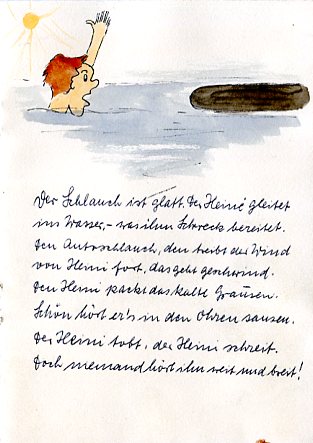 Der Schlauch ist glatt. Der Heini gleitet
ins Wasser, – was ihm Schreck bereitet.
Den Autoschlauch, den treibt der Wind
von Heini fort, das geht geschwind.
Den Heini packt das kalte Grausen.
Schon hört er's in den Ohren sausen.
Der Heini tobt, der Heini schreit.
Doch niemand hört ihn weit und breit!